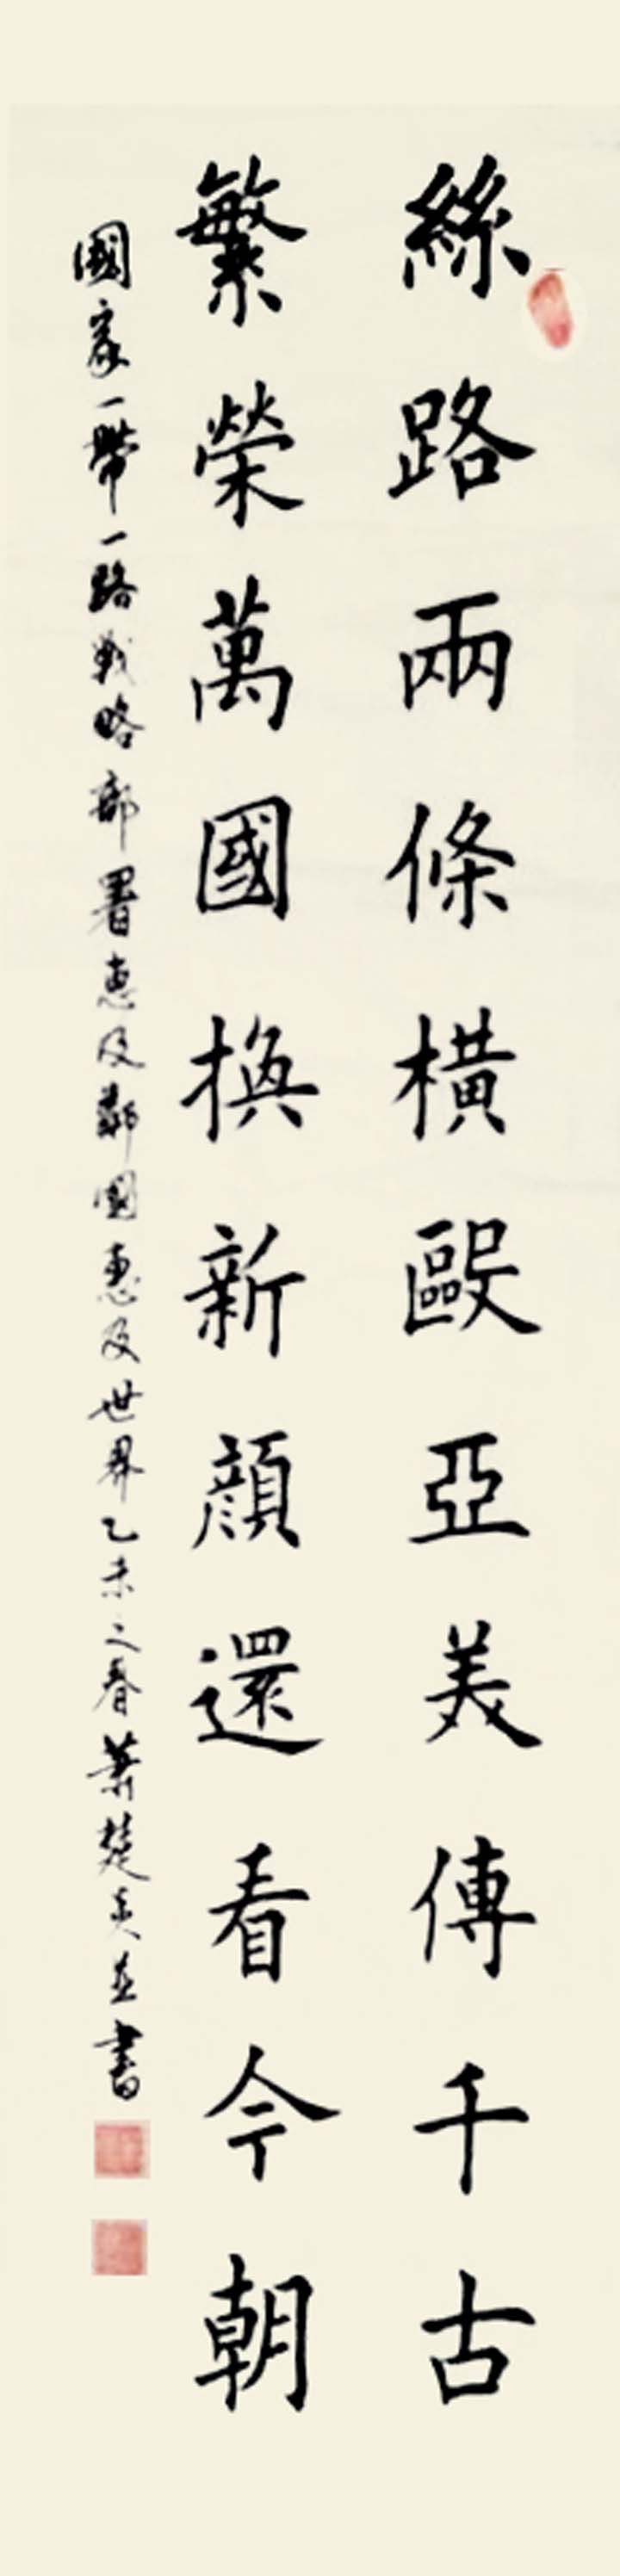 絲路兩條橫毆亞美傳千古
繁榮萬國換新顔還看今朝
國家一帶一路戰略部署惠及鄰國惠及世界乙未之春蕭楚並書